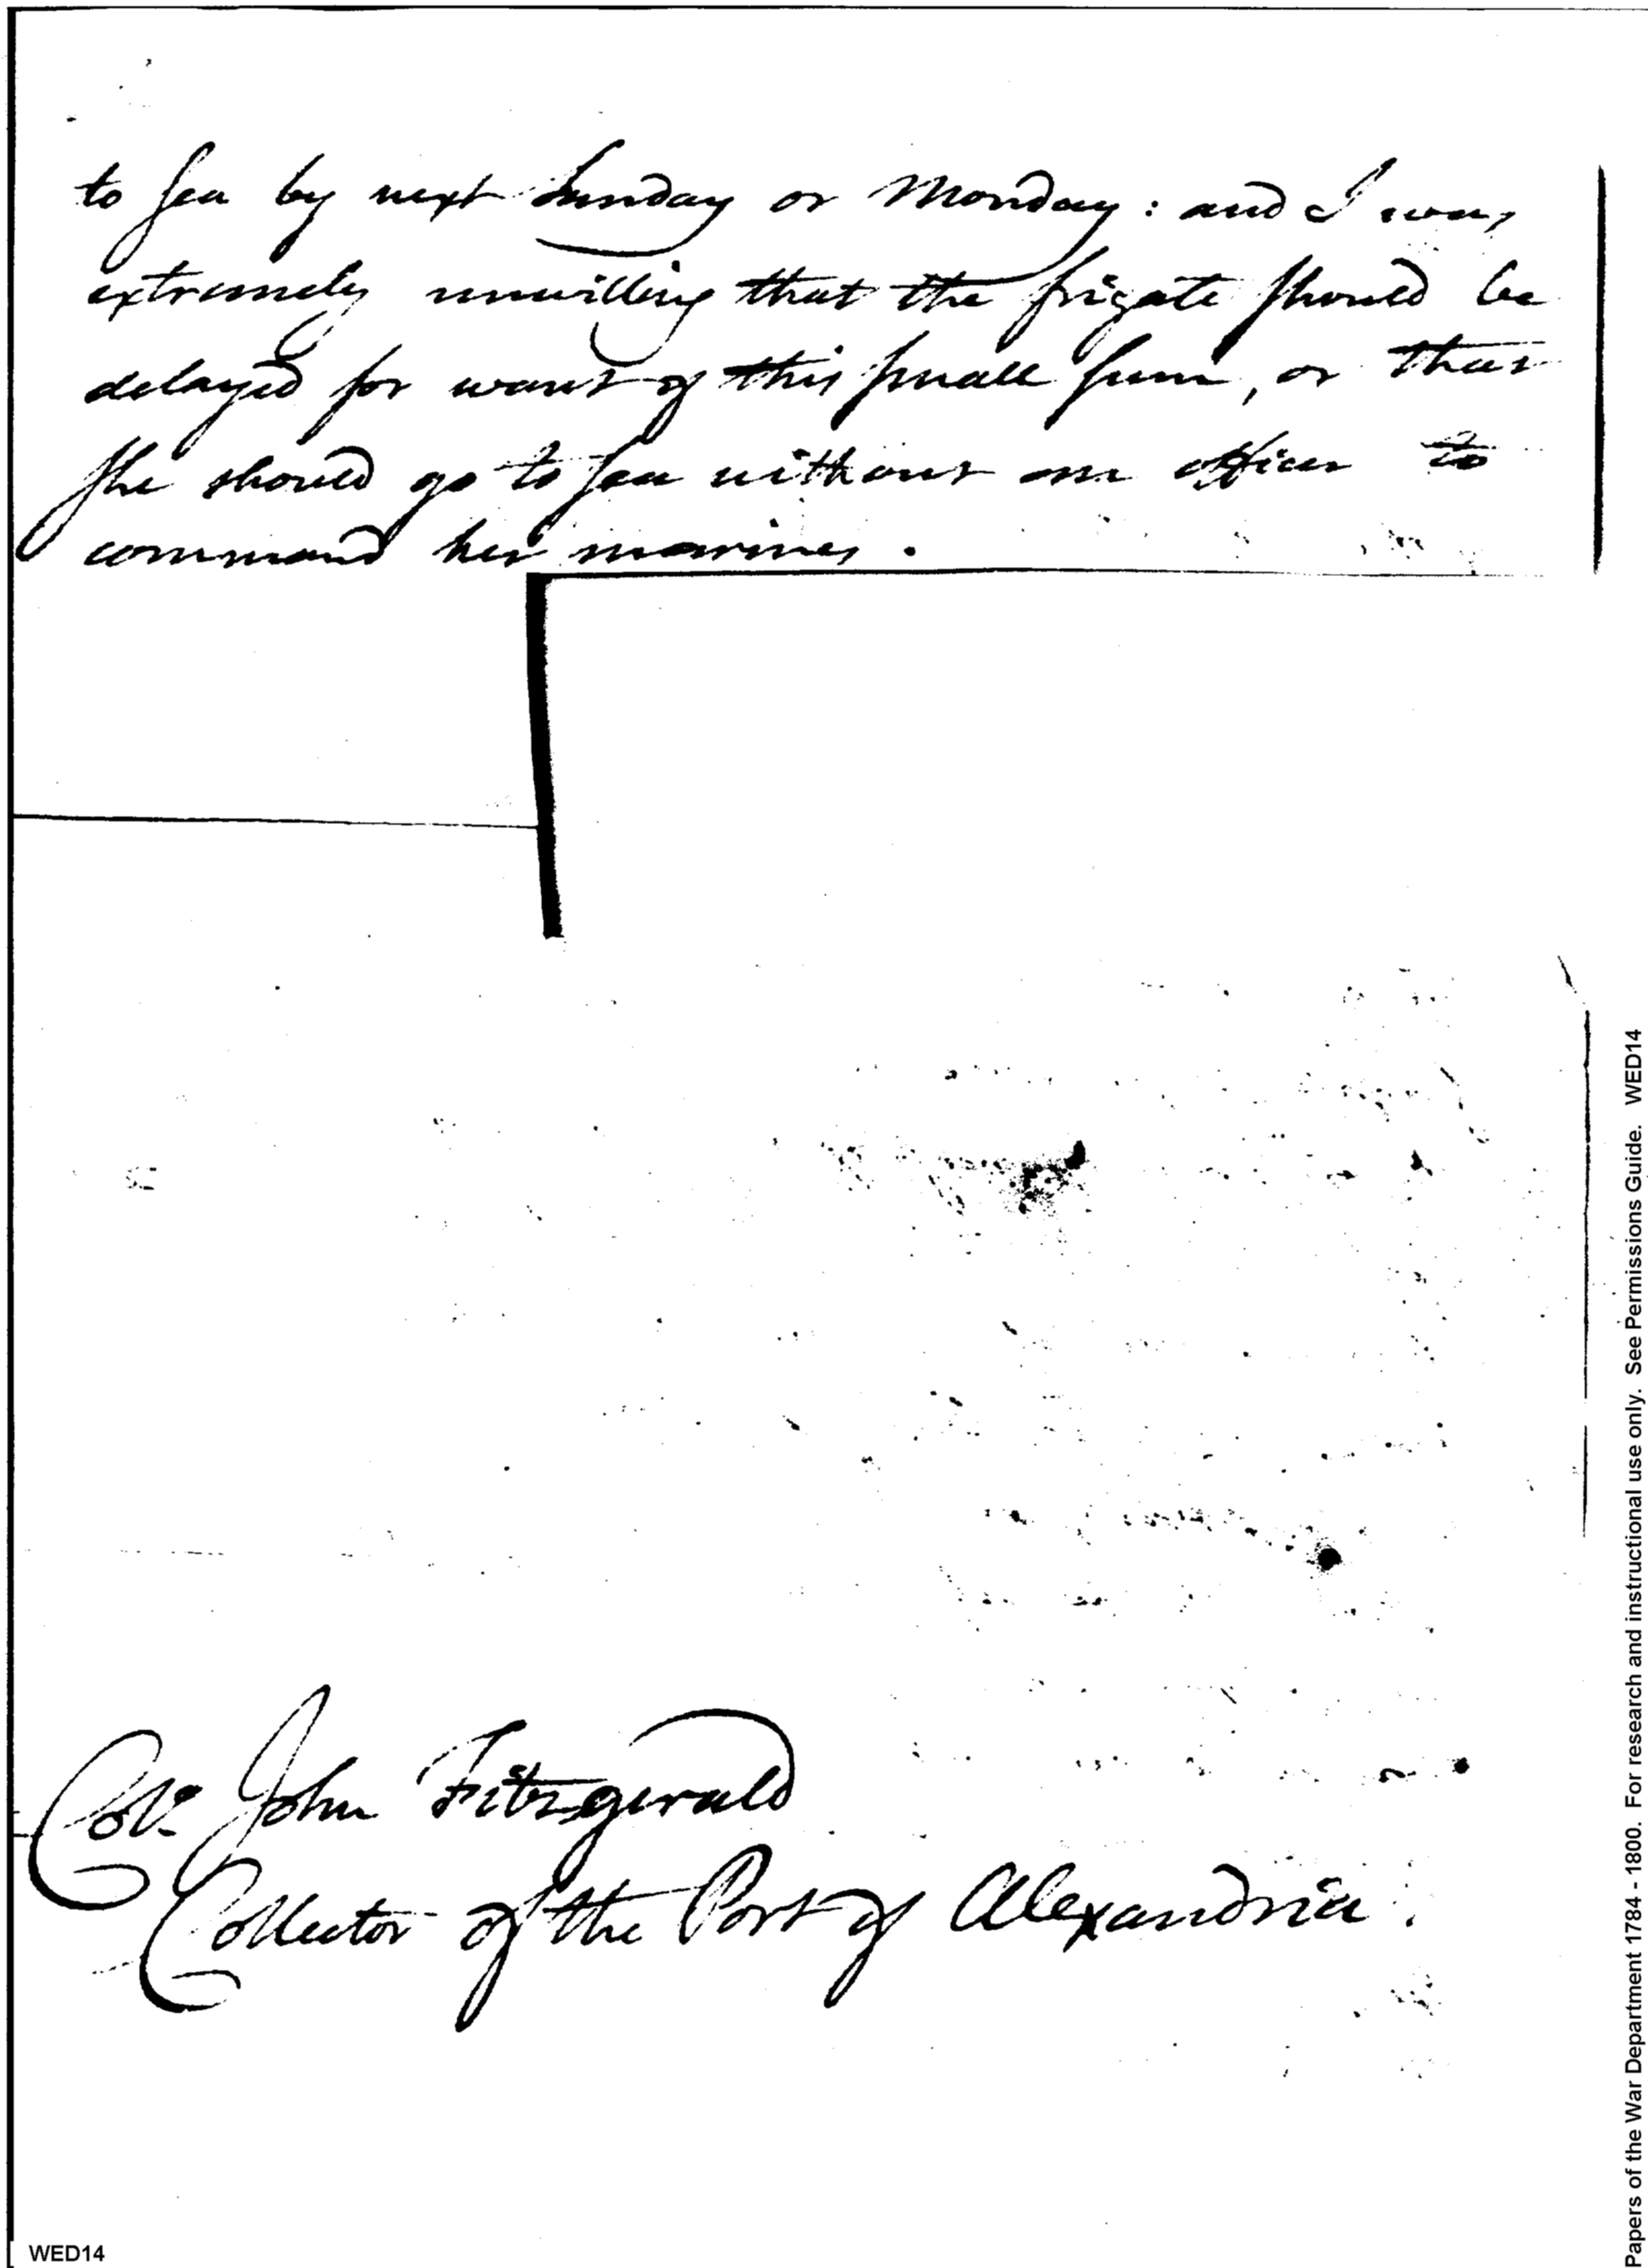 to sea by next Sunday or Monday: and I was,
extremely unwilling that the frigate should be
delayed for want of this small sum, or that
she should go to sea without an officer to
command her marines.
Colo. John Fitzgerald
Collector of the Port of Alexandria.
Papers of the War Department 1784 - 1800. For research and instructional use only. See Permissions Guide. WED14
WED14